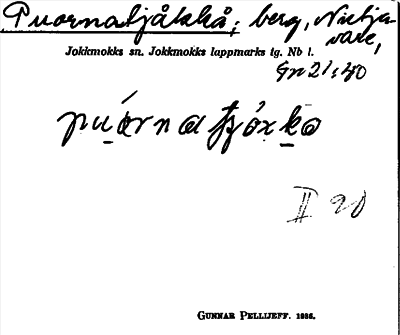 Puornatjåkkå; berg, Nietja-
vare,
Jokkmokks sn. Jokkmokks lappmarks tg. Nb l.
Gn 21:40
II 20
GUNNAR PELLIJEFF. 1986.